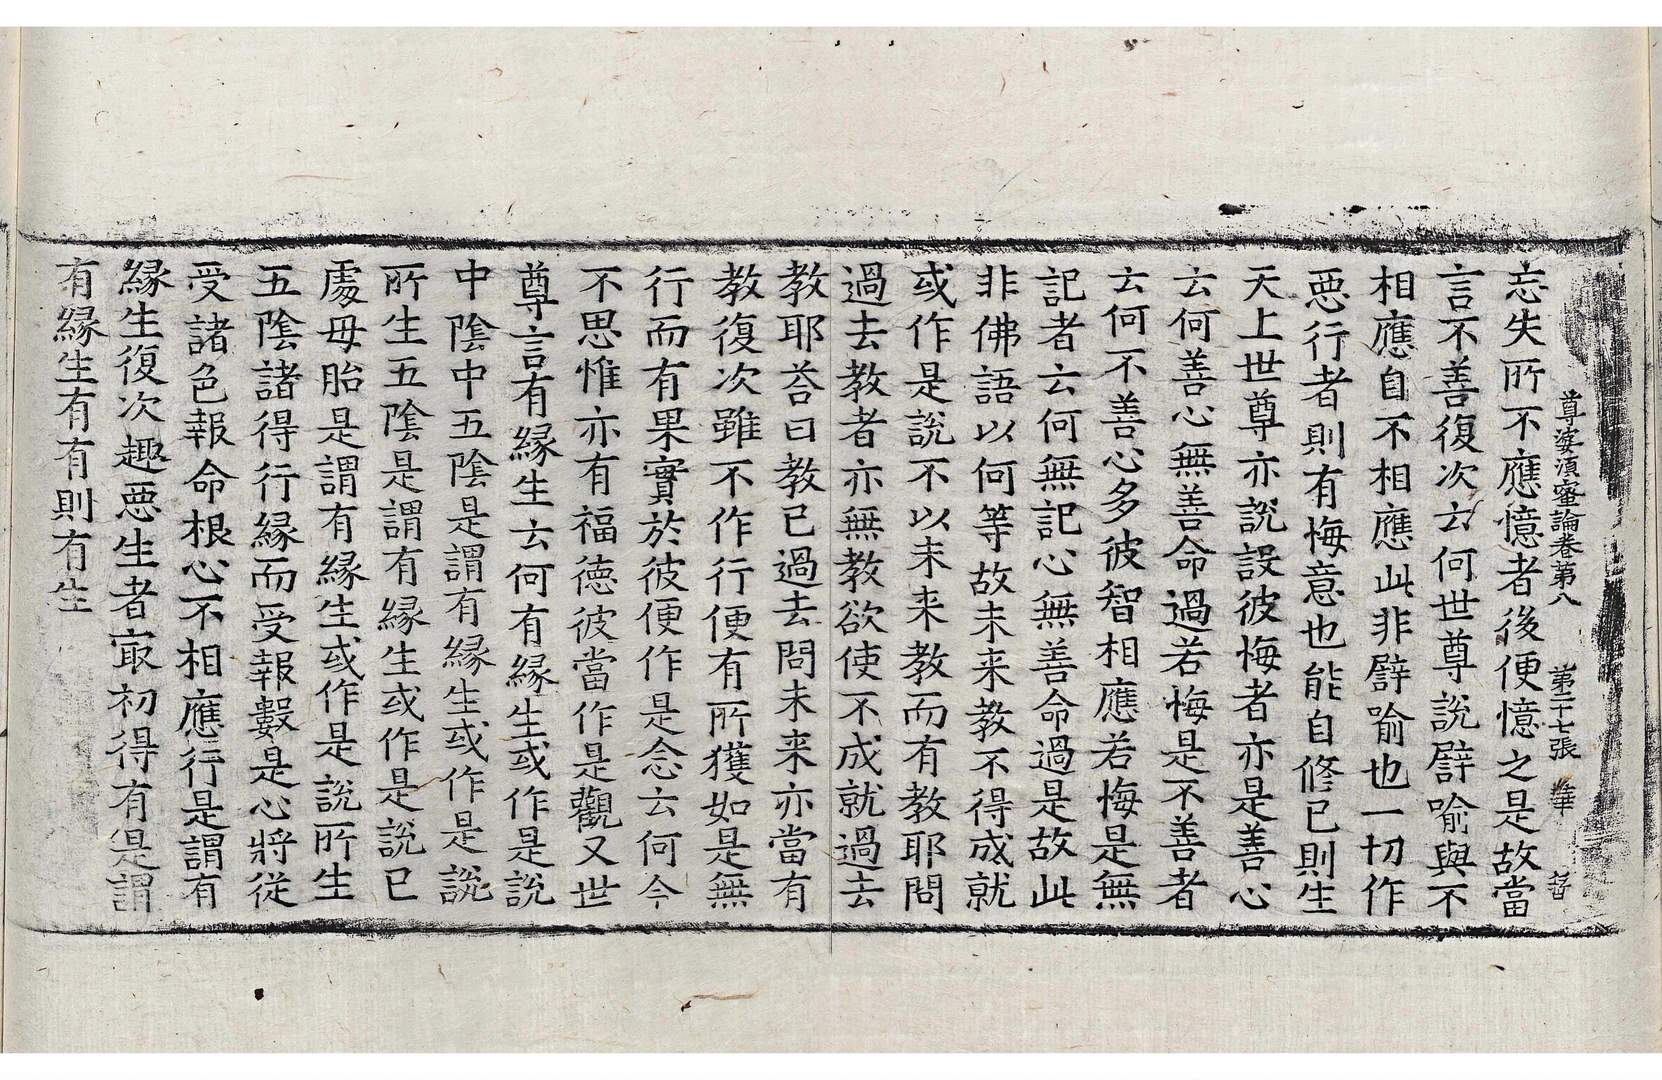 尊婆須蜜論卷第八 第二十七張 華
忘失所不應憶者後便憶之是故當
言不善復次云何世尊說譬喻與不
相應自不相應此非譬喻也一切作
惡行者則有悔意也能自修已則生
天上世尊亦說設彼悔者亦是善心
云何善心無善命過若悔是不善者
云何不善心多彼智相應若悔是無
記者云何無記心無善命過是故此
非佛語以何等故未来教不得成就
或作是說不以未来教而有教耶問
過去教者亦無教欲使不成就過去
教耶荅曰教已過去問未来亦當有
教復次雖不作行便有所獲如是無
行而有果實於彼便作是念云何今
不思惟亦有福德彼當作是觀又世
尊言有縁生云何有縁生或作是說
中陰中五陰是謂有縁生或作是說
所生五陰是謂有縁生或作是說已
處母胎是謂有縁生或作是說所生
五陰諸得行縁而受報數是心將從
受諸色報命根心不相應行是謂有
縁生復次趣惡生者冣初得有是謂
有縁生有有則有生